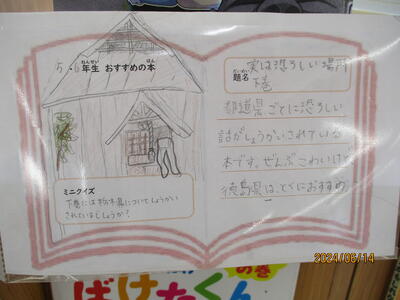 5・6年生 おすすめの本
ねんせい
ほん
ミニクイズ
下巻には栃木県についてしょうかい
されているでしょうか?
だいめい
題名
実は恐ろしい場所
下巻
都道県ごとに恐ろしい
話がしょうかいされている
本です。ぜんぶこわいけど
徳島県は、とくにおすすめ
の巻
ばけたくん
2024/06/14